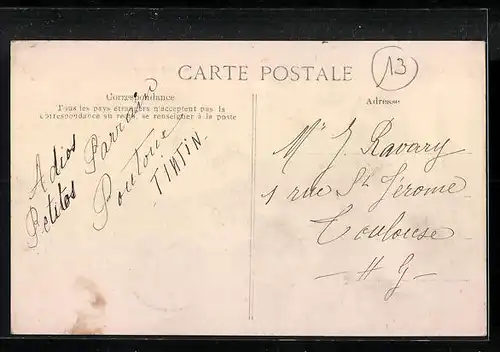 CARTE POSTALE
13
Correspondance
Tous les pays étrangers n'acceptent pas la
correspondance au recto, se renseigner à la poste
Adresse
Adios
Petitos
TINTIN
Mr J. Ravary
1 rue St Jérome
Toulouse
H G